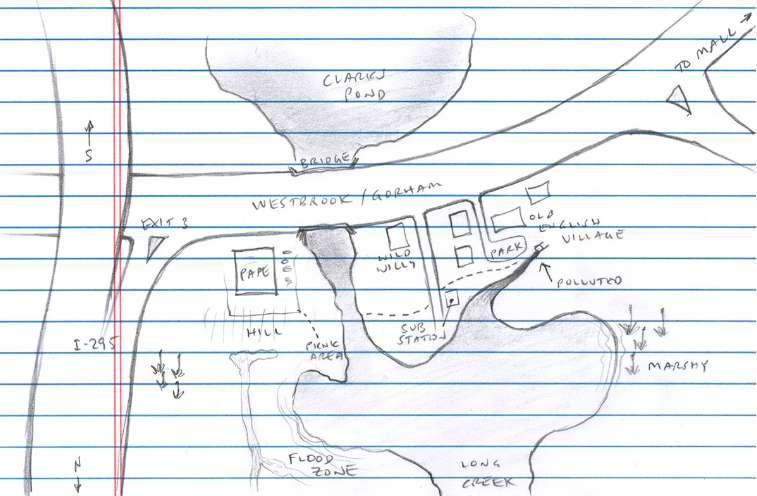 CLARKS
POND
TO MALL
S
BRIDGE
WESTBROOK / GORHAM
EXIT 3
OLD
ENGLISH
VILLAGE
WILD
WILLY
PARK
PAPE
POLLUTED
HILL
SUB
STATION
I-295
PICNIC
AREA
MARSHY
N
FLOOD
ZONE
LONG
CREEK